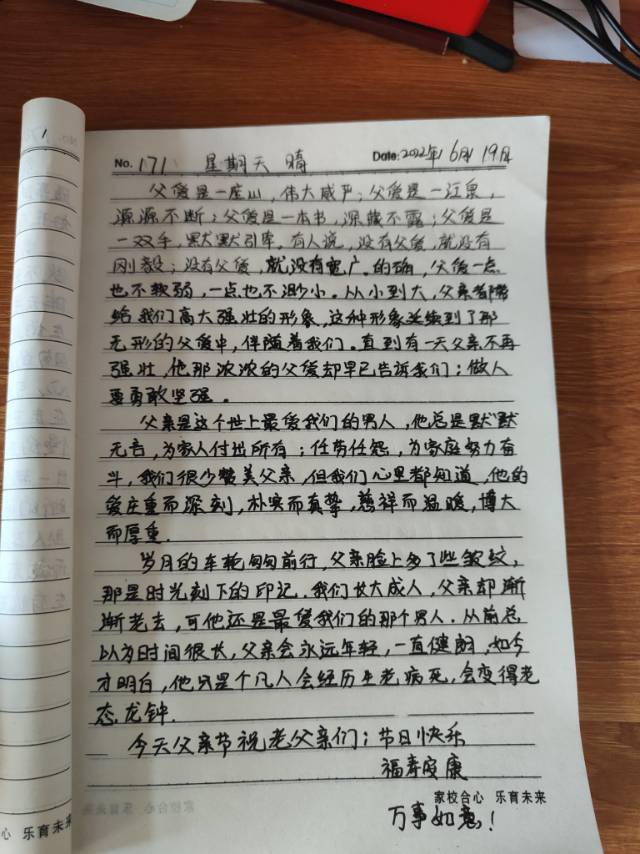 No. 171 星期天 晴 Date: 2022年6月19日
父爱是一座山，伟大威严；父爱是一江泉，
源源不断；父爱是一本书，深藏不露；父爱是
一双手，默默引牵。有人说，没有父爱，就没有
刚毅；没有父爱，就没有宽广。的确，父爱一点
也不软弱，一点也不渺小。从小到大，父亲都带
给我们高大强壮的形象，这种形象延续到了那
无形的父爱中，伴随着我们。直到有一天父亲不再
强壮，他那浓浓的父爱却早已告诉我们：做人
要勇敢坚强。
父亲是这个世上最爱我们的男人，他总是默默
无言，为家人付出所有；任劳任怨，为家庭努力奋
斗，我们很少赞美父亲，但我们心里都知道，他的
爱庄重而深刻，朴实而真挚，慈祥而温暖，博大
而厚重.
岁月的车轮匆匆前行，父亲脸上多了些皱纹，
那是时光刻下的印记.我们长大成人，父亲却渐
渐老去，可他还是最爱我们的那个男人.从前总
以为时间很长，父亲会永远年轻，一直健朗，如今
才明白，他只是个凡人会经历生老病死，会变得老
态龙钟.
今天父亲节祝老父亲们；节日快乐
福寿安康
家校合心 乐育未来
万事如意！
心 乐育未来